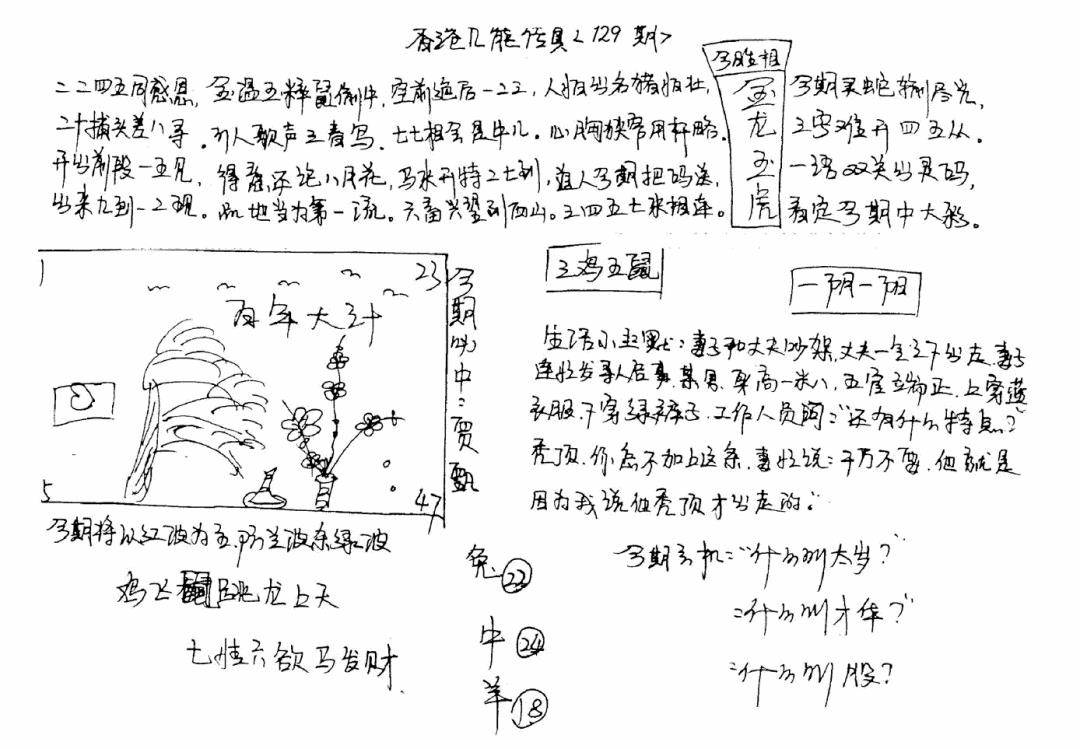 香港几熊传真<129期>
二二四五同感恩，金温五粹鼠猴中，空前追后一22，人旺出名猪旺壮，
二十捕头差八寻，引人歌声主春写，七七相会是牛儿。心胸狭窄用杆略。
开出前段一五见，得意还记八月花，马来开特2七到，道人今期把码送，
出来九到一2现。此地当为第一流。六畜兴望到西山。三四五七来相连。
今胜相
金龙玉虎
今期灵蛇转尽光，
主字难开四五从。
一语双关出灵码，
看定今期中大彩。
1
23
百年大计
5
47
今期必中：贾甄
三鸡五鼠
一阴一阳
生活小幽默：妻子和丈夫吵架，丈夫一气之下出走，妻子
连忙发寻人启事，某男，身高一米八，五官端正，上穿蓝
衣服，下穿绿裤子，工作人员问："还有什么特点？"
秃顶，你怎不加上这条，妻忙说：千万不要，他就是
因为我说他秃顶才出走的。
今期将以红波为主，防兰波杀绿波
鸡飞鼠跳龙上天
七情六欲马发财
兔 22
中 24
羊 18
今期玄机："什么叫太岁？"
：什么叫才华？"
：什么叫股？